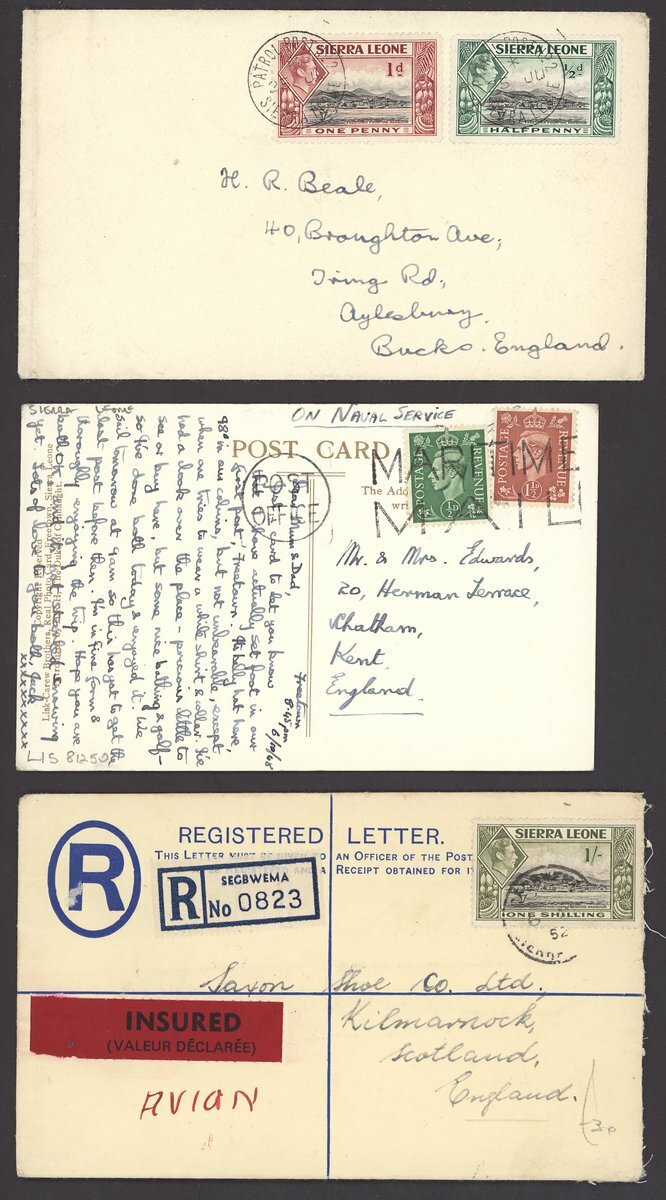 SIERRA LEONE
1d
ONE PENNY
SIERRA LEONE
½d
HALFPENNY
PATROL POST
H. R. Beale,
40, Broughton Ave,
Tring Rd.,
Aylesbury,
Bucks. England.
ON NAVAL SERVICE
POST CARD
The Add
wri
POSTAGE REVENUE
½D
POSTAGE REVENUE
1½D
MARITIME
MAIL
Freetown
8.45 pm
6/10/48
Dear Mum & Dad,
Just a card to let you know
that I have actually set foot in our
first port, Freetown. It's hellish hot here,
98° in our cabins, but not unbearable, except
when one tries to wear a white shirt & collar. I've
had a look over the place - precious little to
see or buy here, but some nice bathing & golf -
so I've done both today & enjoyed it. We
sail tomorrow at 9am so this has got to get the
last post before then. I'm in fine form &
thoroughly enjoying the trip. Hope you are
both
yet. Lots of love to you both, Jack
xxxxxxxxx
Copyright Reserved
Lisk-Carew Brothers, Real Photo Card, Freetown, Sierra Leone
LIS 81250
Mr. & Mrs. Edwards,
20, Herman Terrace,
Chatham,
Kent.
England.
REGISTERED LETTER.
THIS LETTER MUST BE GIVEN TO AN OFFICER OF THE POST
RECEIPT OBTAINED FOR IT
R
R
SEGBWEMA
No 0823
SIERRA LEONE
1/-
ONE SHILLING
52
Saxon Shoe Co. Ltd,
Kilmarnock,
Scotland,
England.
INSURED
(VALEUR DÉCLARÉE)
AVIAN